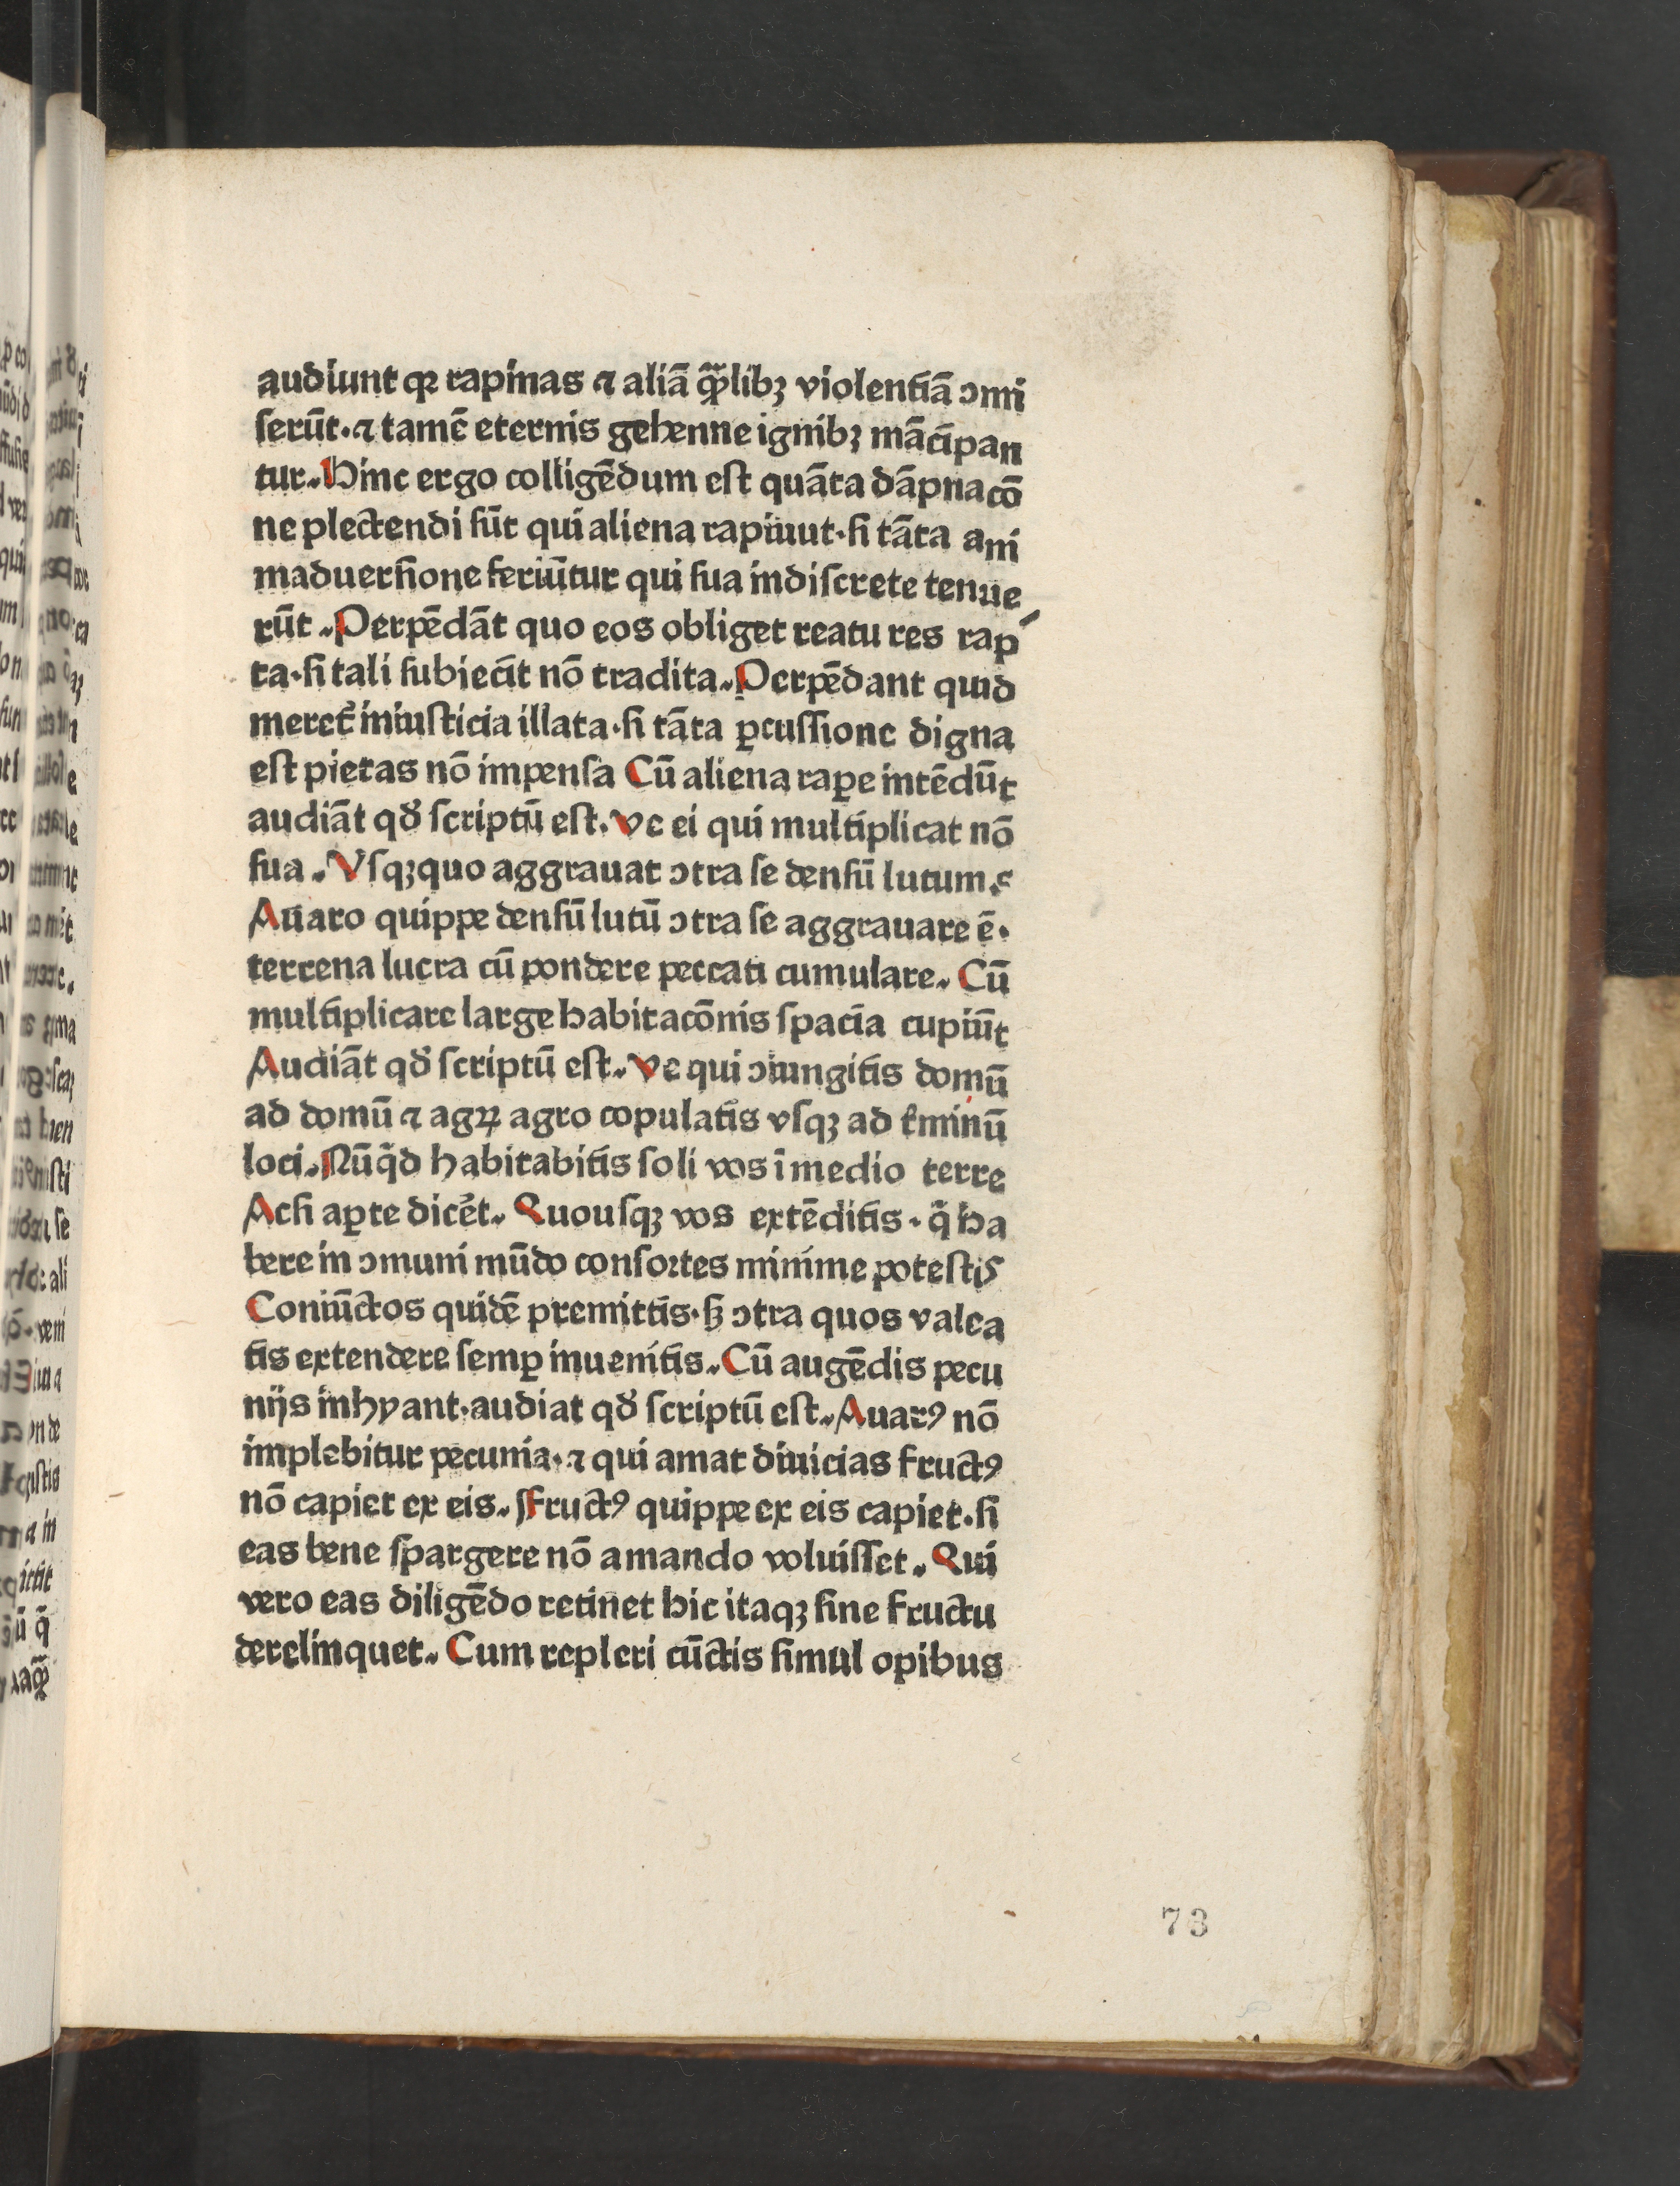 audiunt qꝛ rapinas ⁊ aliā q̄̃libꝫ violentiā ɔmi
ſerūt·⁊ tamē eternis gehenne ignibꝫ mācipan
tur. Hinc ergo colligēdum eſt quāta dāpnacō
ne plectendi ſūt qui aliena rapiuut·ſi tāta ani
maduerſione feriūtur qui ſua indiſcrete tenue
rūt. Perpēdāt quo eos obliget reatu res rap
ta·ſi tali ſubiecit nō tradita. Perpēdant quid
meret᷑ iniuſticia illata·ſi tāta ꝑcuſſione digna
eſt pietas nō impenſa Cū aliena raꝑe intēdūt
audiāt qđ ſcriptū eſt. ve ei qui multiplicat nō
ſua. Vſqꝫquo aggrauat ɔtra ſe denſū lutum.
Auaro quippe denſū lutū ɔtra ſe aggrauare ē·
terrena lucra cū pondere peccati cumulare. Cū
multiplicare large habitacōnis ſpacia cupiūt
Audiāt qđ ſcriptū eſt. ve qui ɔiungitis domū
ad domū ⁊ agꝝ agro copulatis vſqꝫ ad t̓minū
loci. Nūq̄d habitabitis ſoli vos ī medio terre
Acſi aꝑte dicēt. Quouſqꝫ vos extēditis· q̄ ha
bere in ɔmuni mūdo conſortes minime poteſtis
Coniūctos quidē premittis·ſꝫ ɔtra quos valea
tis extendere ſemꝑ inuenitis. Cū augēdis pecu
nijs inhyant·audiat qđ ſcriptū eſt. Auarꝰ nō
implebitur pecunia·⁊ qui amat diuicias fructꝰ
nō capiet ex eis. Fructꝰ quippe ex eis capiet·ſi
eas bene ſpargere nō amando voluiſſet. Qui
vero eas diligēdo retinet hic itaqꝫ ſine fructu
derelinquet. Cum repleri cūctis ſimul opibus
73